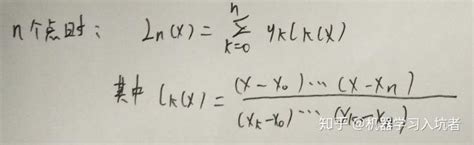 n个点时: Ln(x) = n∑k=0 yk lk(x)
其中 lk(x) = (x-x0)···(x-xn) / (xk-x0)···(xk-xn)
知乎 @机器学习入坑者